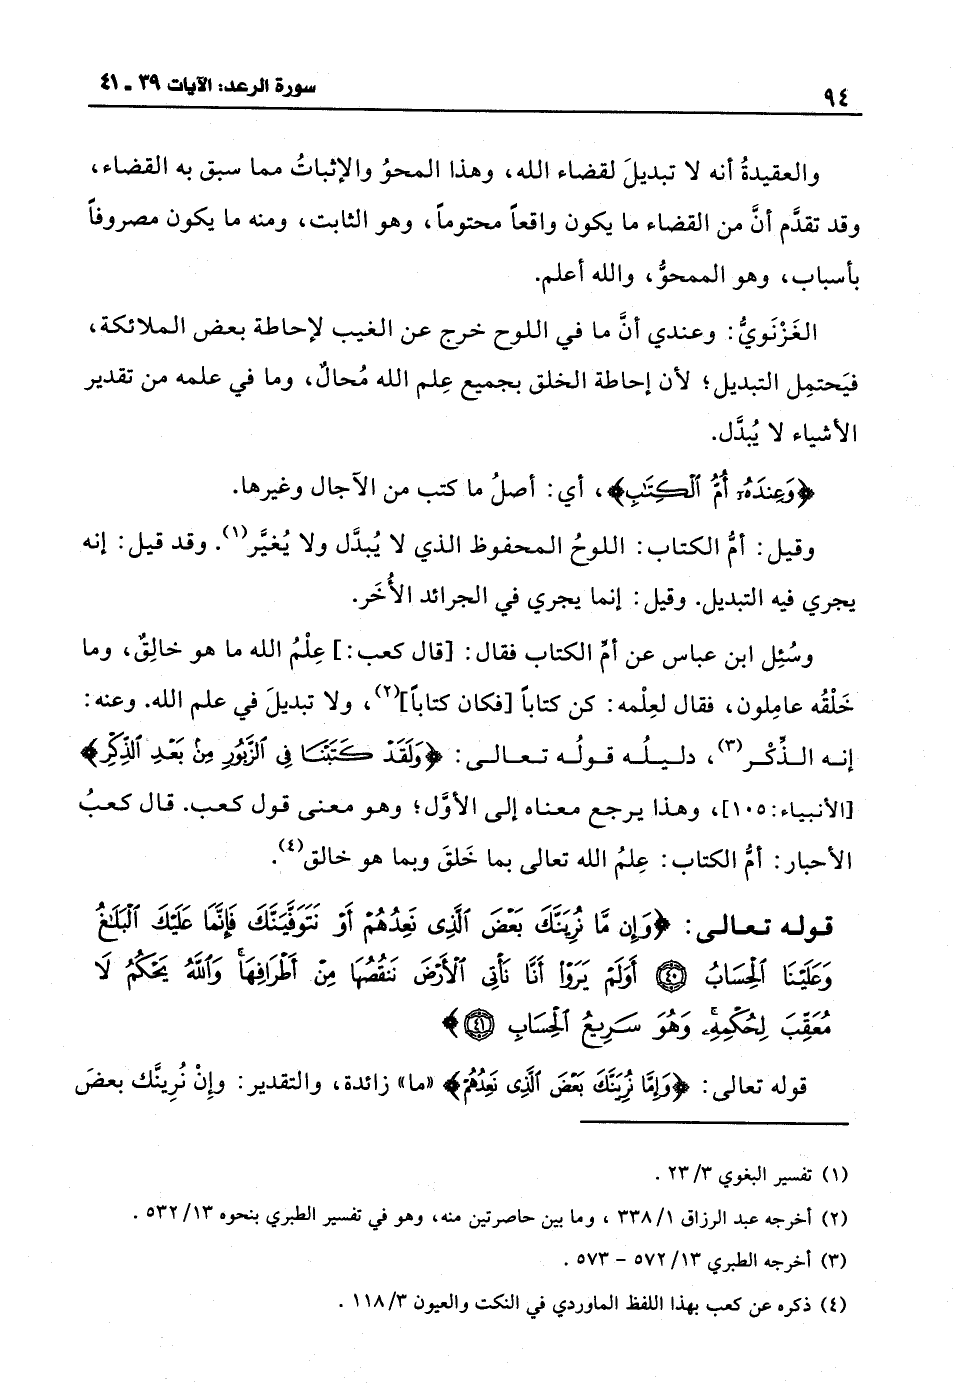 سورة الرعد: الآيات ٣٩ ـ ٤١
٩٤
والعقيدةُ أنه لا تبديلَ لقضاء الله، وهذا المحوُ والإثباتُ مما سبق به القضاء،
وقد تقدَّم أنَّ من القضاء ما يكون واقعاً محتوماً، وهو الثابت، ومنه ما يكون مصروفاً
بأسباب، وهو الممحوُّ، والله أعلم.
الغَزْنَويُّ: وعندي أنَّ ما في اللوح خرج عن الغيب لإحاطة بعض الملائكة،
فيَحتمِل التبديل؛ لأن إحاطة الخلق بجميع عِلم الله مُحالٌ، وما في علمه من تقدير
الأشياء لا يُبدَّل.
﴿وَعِندَهُۥٓ أُمُّ ٱلْكِتَٰبِ﴾، أي: أصلُ ما كتب من الآجال وغيرها.
وقيل: أمُّ الكتاب: اللوحُ المحفوظ الذي لا يُبدَّل ولا يُغيَّر(١). وقد قيل: إنه
يجري فيه التبديل. وقيل: إنما يجري في الجرائد الأُخَر.
وسُئِل ابن عباس عن أمِّ الكتاب فقال: [قال كعب:] عِلْمُ الله ما هو خالِقٌ، وما
خَلْقُه عامِلون، فقال لعِلْمه: كن كتاباً [فكان كتاباً](٢)، ولا تبديلَ في علم الله. وعنه:
إنه الذِّكْر(٣)، دليلُه قولُه تعالى: ﴿وَلَقَدْ كَتَبْنَا فِى ٱلزَّبُورِ مِنۢ بَعْدِ ٱلذِّكْرِ﴾
[الأنبياء: ١٠٥]، وهذا يرجع معناه إلى الأوَّل؛ وهو معنى قول كعب. قال كعبُ
الأحبار: أمُّ الكتاب: عِلمُ الله تعالى بما خَلقَ وبما هو خالق(٤).
قوله تعالى: ﴿وَإِن مَّا نُرِيَنَّكَ بَعْضَ ٱلَّذِى نَعِدُهُمْ أَوْ نَتَوَفَّيَنَّكَ فَإِنَّمَا عَلَيْكَ ٱلْبَلَٰغُ
وَعَلَيْنَا ٱلْحِسَابُ ٤٠ أَوَلَمْ يَرَوْا۟ أَنَّا نَأْتِى ٱلْأَرْضَ نَنقُصُهَا مِنْ أَطْرَافِهَا ۚ وَٱللَّهُ يَحْكُمُ لَا
مُعَقِّبَ لِحُكْمِهِۦ ۚ وَهُوَ سَرِيعُ ٱلْحِسَابِ ٤١﴾
قوله تعالى: ﴿وَإِمَّا نُرِيَنَّكَ بَعْضَ ٱلَّذِى نَعِدُهُمْ﴾ «ما» زائدة، والتقدير: وإنْ نُرينَّك بعضَ
(١) تفسير البغوي ٣/ ٢٣ .
(٢) أخرجه عبد الرزاق ١/ ٣٣٨ ، وما بين حاصرتين منه، وهو في تفسير الطبري بنحوه ١٣/ ٥٣٢ .
(٣) أخرجه الطبري ١٣/ ٥٧٢ - ٥٧٣ .
(٤) ذكره عن كعب بهذا اللفظ الماوردي في النكت والعيون ٣/ ١١٨ .